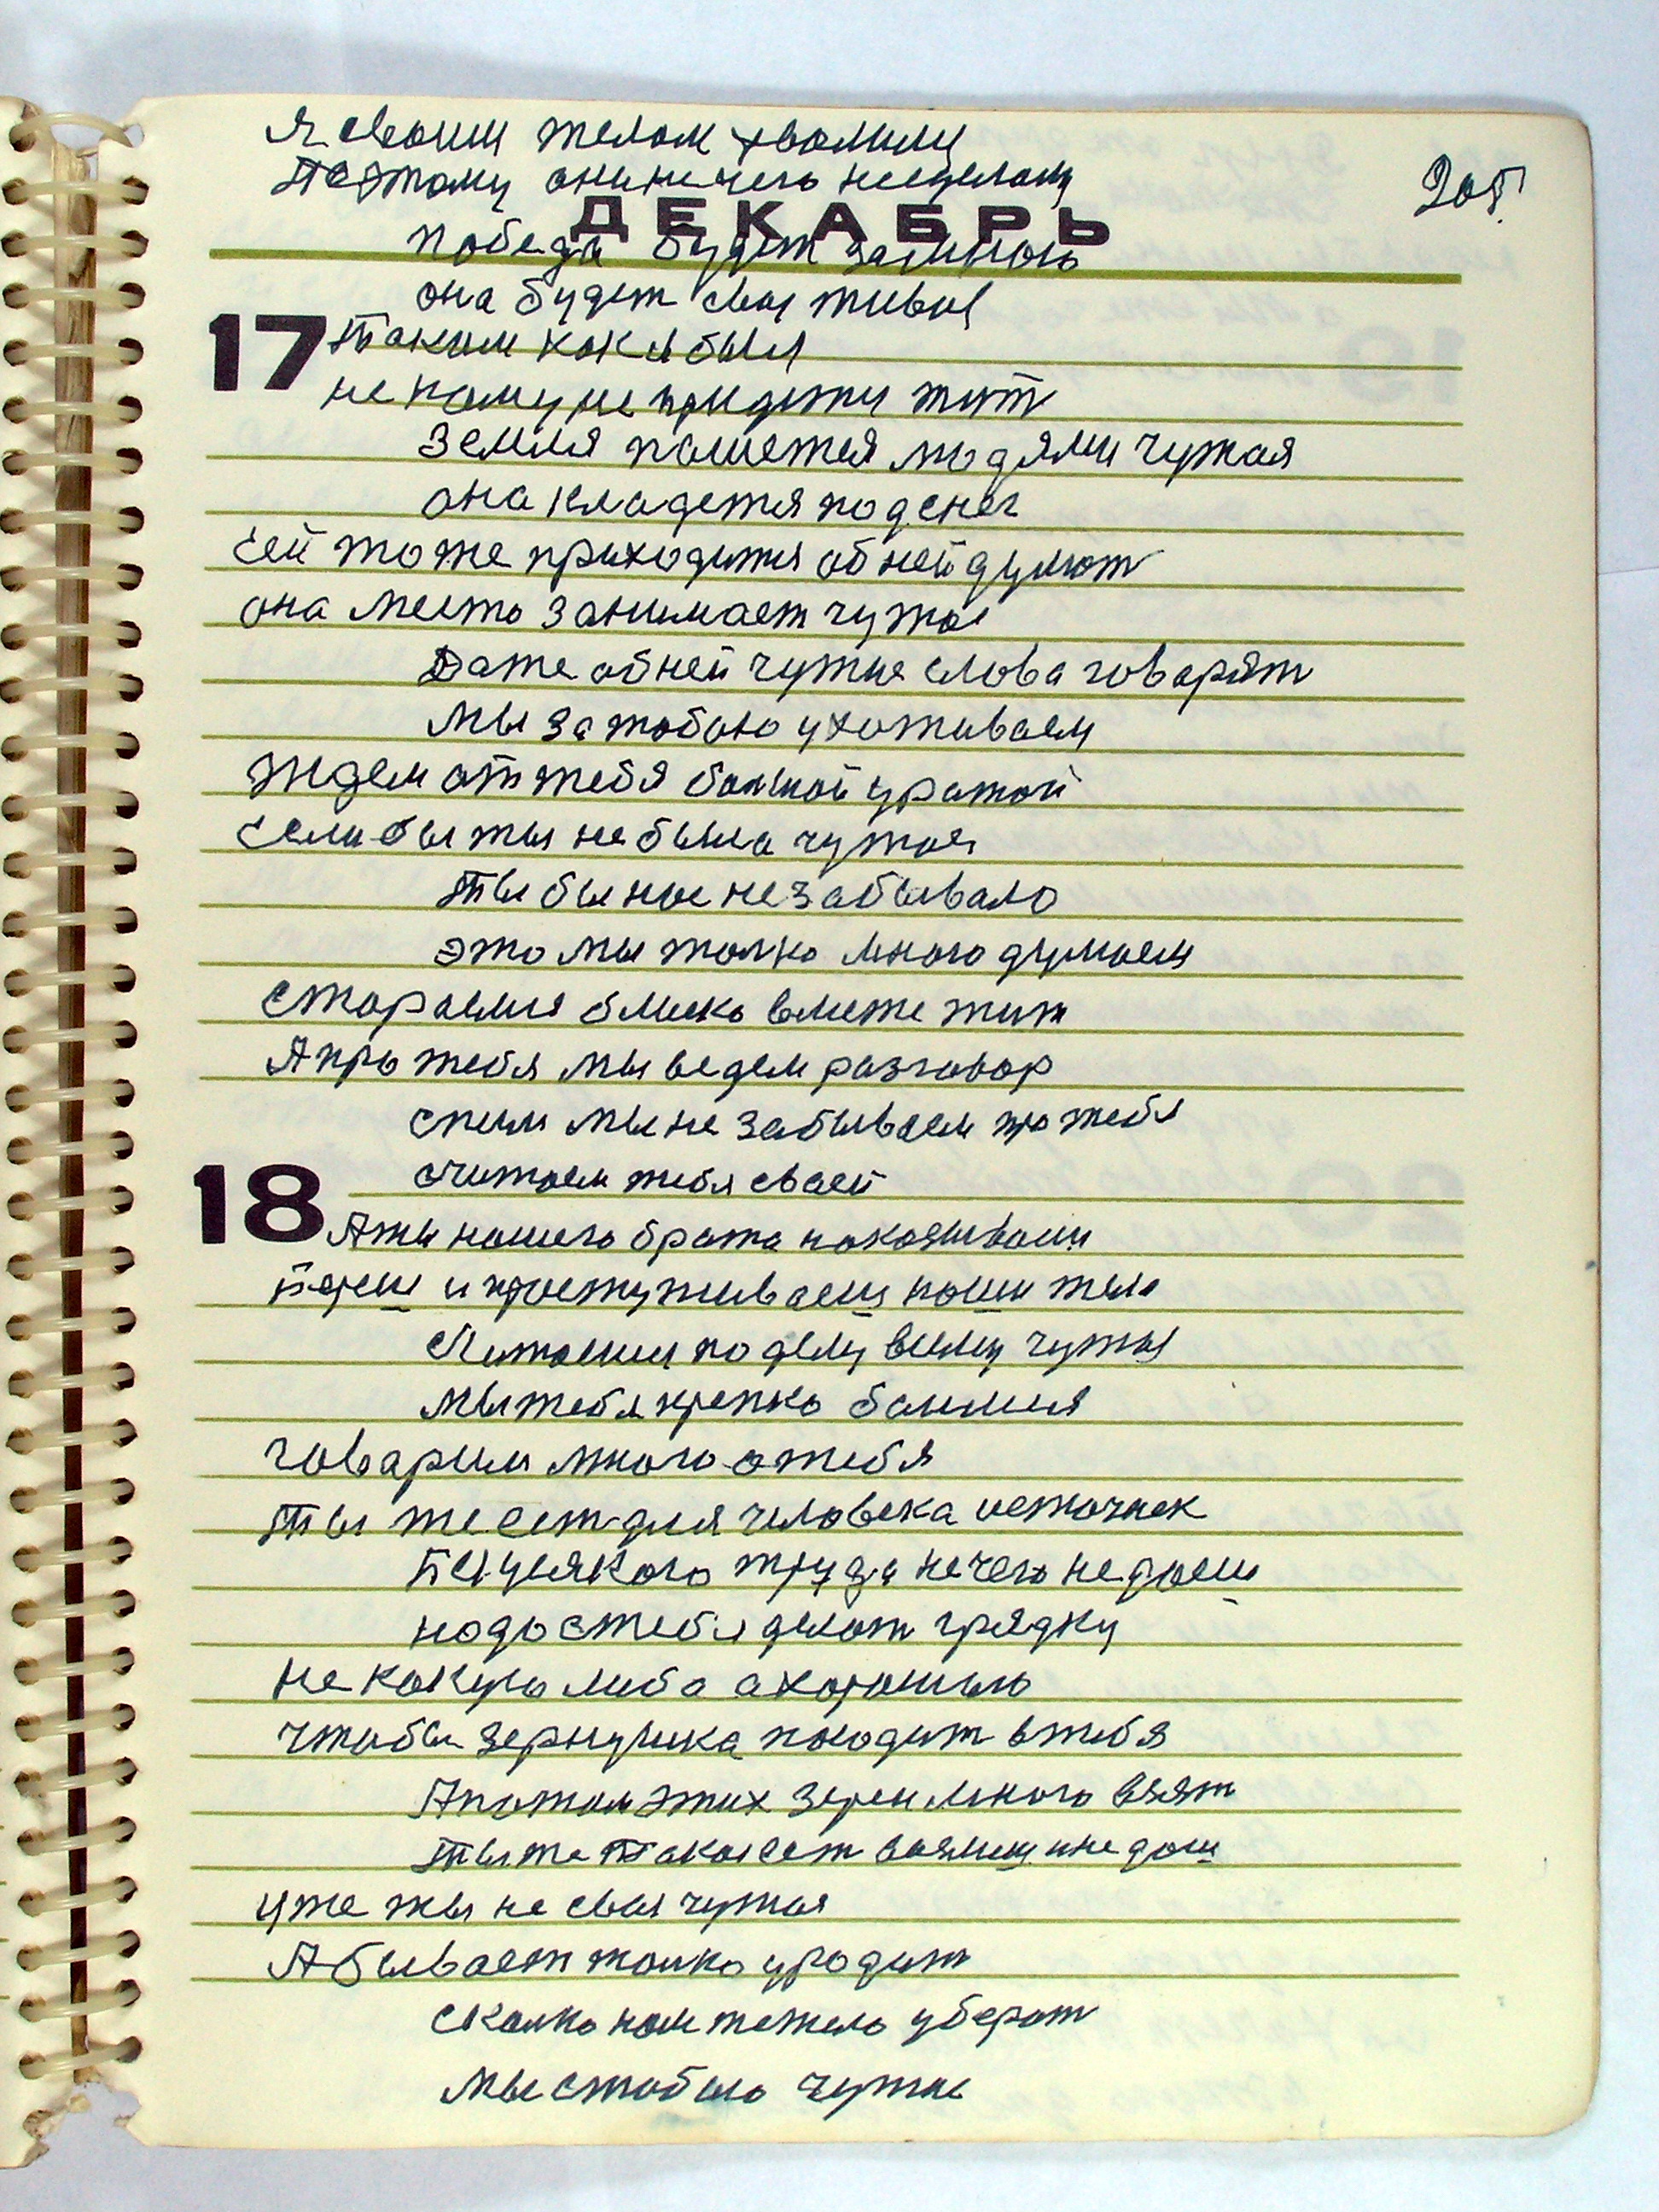 Я своим телом хвалилы
Поэтому они ничего не сделаю
205.
ДЕКАБРЬ
победа будет за мною
она будет своя живая
17
Таким как я был
не кому не придется жит
Земля пашется людями чужая
она кладется под снег
ей тоже приходится об ней думют
она место занимает чужое
Даже об ней чужие слова говорят
мы за тобою ухоживаем
ждем от тебя болшой уражай
если бы ты не была чужая
Ты бы нас не забывало
это мы толко много думаем
стараемся близко вместе жит
А про тебя мы ведем разговор
спим мы не забываем про тебя
считаем тебя своей
18
А ты нашего брата накаэывающ
и простуживаеш наши тела
Читаеши по делу всему чужая
мы тебя крепко баимся
говарим много о тебя
ты же ест для человека источнек
Без усякого труда нечего не даеш
надо с тебя делат грядку
не какую либо а хорошаю
чтобы зернушка походит в тебя
А патом этих зерен много взят
Ты же такая ест и не даш
уже ты не своя чужая
А бывает толко уродит
сколко нам тежело уберат
мы с тобою чужие